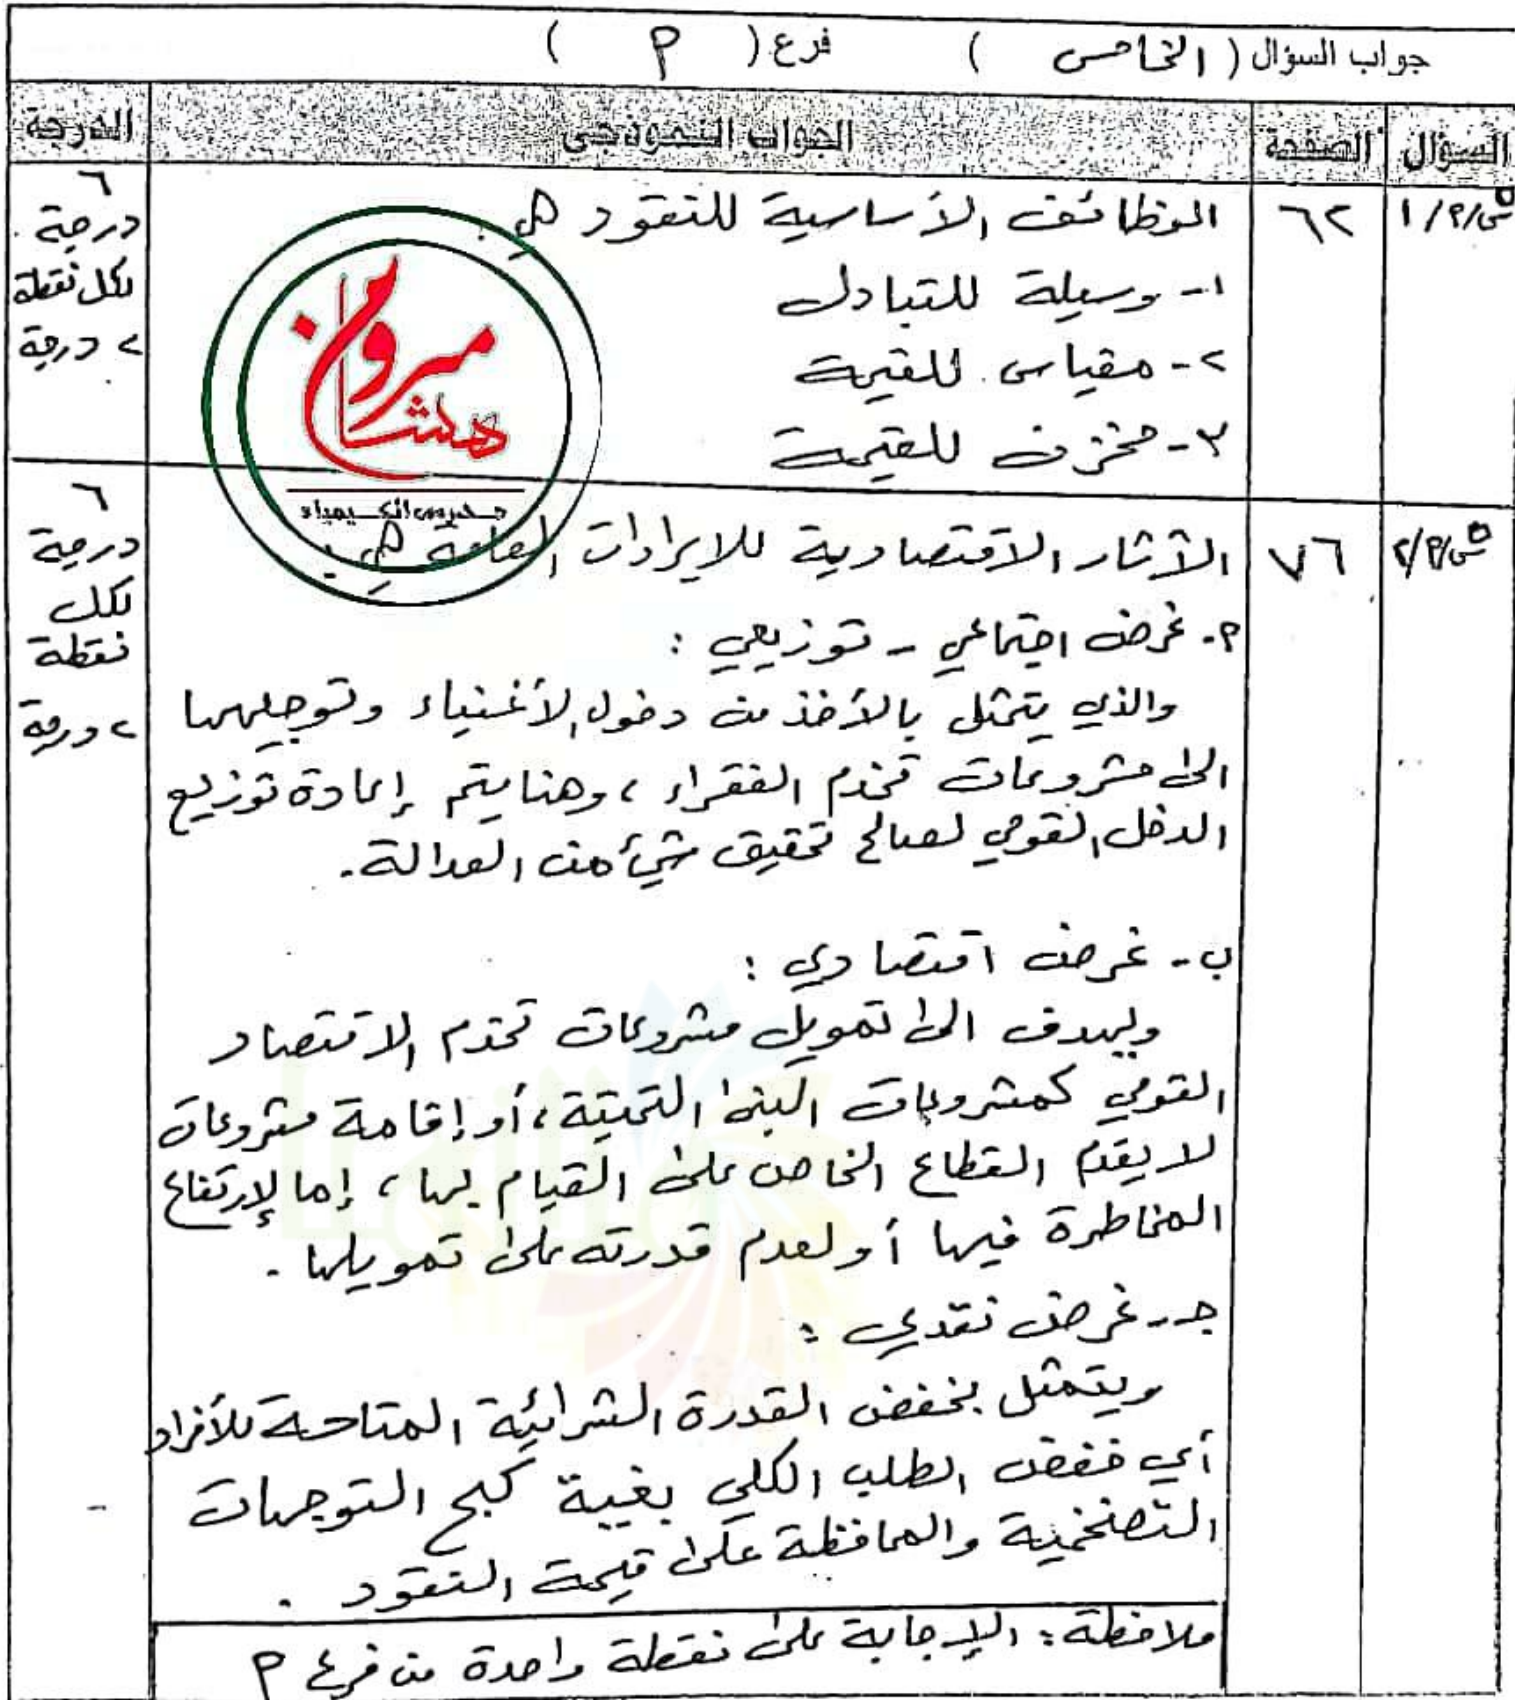 جواب السؤال ( الخامس ) فرع ( أ )
السؤال الصفحة الجواب النموذجي الدرجة
س٥/أ/١ ٦٢ الوظائف الأساسية للنقود هي : ٦
درجة
١- وسيلة للتبادل لكل نقطة
٢- مقياس للقيمة ٢ درجة
٣- مخزن للقيمة
هشام مبروم
مدرس الكيمياء
س٥/أ/٢ ٧٦ الآثار الاقتصادية للايرادات العامة هي : ٦
درجة
أ- غرض اجتماعي - توزيعي : لكل
نقطة
والذي يتمثل بالأخذ من دخول الأغنياء وتوجيهها ٢ درجة
الى مشروعات تخدم الفقراء ، وهنا يتم إعادة توزيع
الدخل القومي لصالح تحقيق شيئ من العدالة .
ب- غرض اقتصادي :
ويهدف الى تمويل مشروعات تخدم الاقتصاد
القومي كمشروعات البنى التحتية ، أو إقامة مشروعات
لا يقدم القطاع الخاص على القيام بها ، إما لإرتفاع
المخاطرة فيها أو لعدم قدرته على تمويلها .
جـ- غرض نقدي :
ويتمثل بخفض القدرة الشرائية المتاحة للأفراد
أي خفض الطلب الكلي بغية كبح التوجهات
التضخمية والمحافظة على قيمة النقود .
ملاحظة : الإجابة على نقطة واحدة من فرع أ